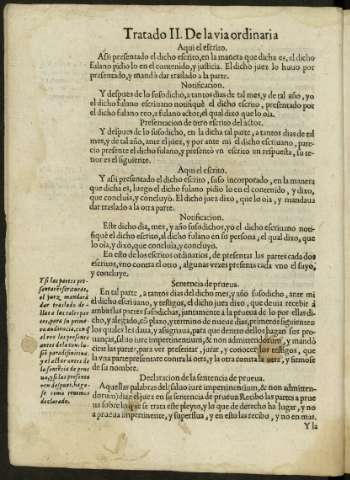 Tratado II. De la via ordinaria
Aqui el escrito.
Assi presentado el dicho escrito, en la manera que dicha es, el dicho
fulano pidio lo en el contenido, y justicia. El dicho juez lo huuo por
presentado, y mandò dar traslado a la parte.
Notificacion.
Y despues de lo susodicho, a tantos dias de tal mes, y de tal año, yo
el dicho fulano escriuano notifiquè el dicho escrito, presentado por
el dicho fulano reo, a fulano actor, el qual dixo que lo oia.
Presentacion de otro escrito del actor.
Y despues de lo susodicho, en la dicha tal parte, a tantos dias de tal
mes, y de tal año, ante el juez, y por ante mi el dicho escriuano, pare-
cio presente el dicho fulano, y presentò vn escrito en respuesta, su te-
nor es el siguiente.
Aqui el escrito.
Y assi presentado el dicho escrito, suso incorporado, en la manera
que dicha es, luego el dicho fulano pidio lo en el contenido, y dixo,
que concluia, y concluyò. El dicho juez dixo, que lo oia, y mandaua
dar traslado a la otra parte.
Notificacion.
Este dicho dia, mes, y año susodichos, yo el dicho escriuano noti-
fiquè el dicho escrito, al dicho fulano en su persona, el qual dixo, que
lo oia, y dixo, que concluia, y concluyò.
En esto de los escritos ordinarios, de presentar las partes cada dos
escritos, vno contra el otro, algunas vezes presenta cada vno el suyo,
y concluye.
Sentencia de prueua.
En tal parte, a tantos dias del dicho mes, y año susodicho, ante mi
el dicho escriuano, y testigos, el dicho juez dixo, que deuia recibir à
ambas las partes susodichas, juntamente a la prueua de lo por ellas di-
cho, y alegado, cõ plazo, y termino de nueue dias, primeros siguientes
los quales les daua, y assignaua, para que dentro dellos hagan sus pro-
uanças, saluo iure impertinentium, & non admittendorum, y mandò
citar las partes, para ver presentar, jurar, y conocer los testigos, que
la vna parte presentare contra la otra, y la otra contra la otra, y firmose
de su nombre.
Y si las partes pre-
el juez mandarà
dar traslado de-
Declaracion de la sentencia de prueua.
Aquellas palabras del (saluo iure impertinentium, & non admitten-
dorum) dize el juez en su sentencia de prueua Recibo las partes a prue
ua sobre lo que se trata este pleyto, y lo que de derecho ha lugar, y no
a prueua impertinente, y superflua, y en esto las recibo, y no en mas.
Y la